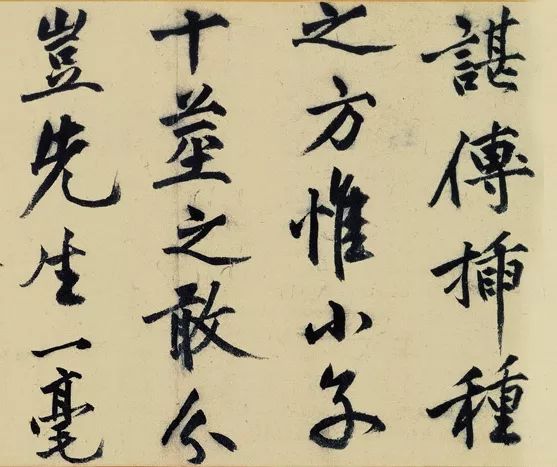 諶傳揷種
之方惟小子
十莖之敢分
豈先生一毫